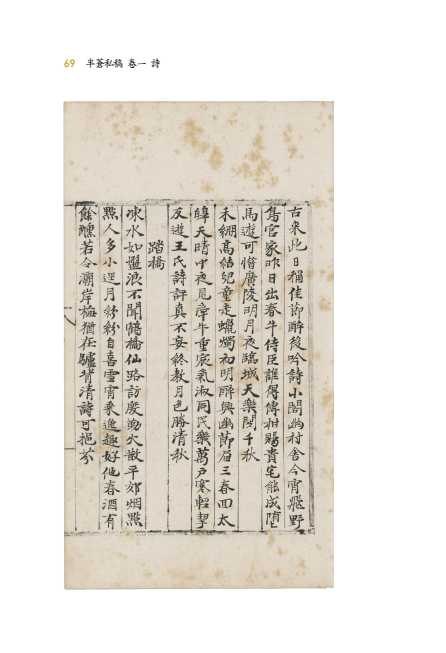 69 半蒼私稿 卷一 詩
古來此日稱佳節醉後吟詩小閤幽村舍今宵飛野
雋官家昨日出春牛侍臣誰得傳柑賜貴宅能成墮
馬遊可惜廣陵明月夜臨城天樂閙千秋
禾綳高結兒童走蠟燭初明醉興幽節屆三春回太
皞天晴中夜見牽牛重裘氣淑同民樂萬戶寒輕挈
友遊王氏詩評眞不妄終敎月色勝淸秋
踏橋
凍水如盤浪不聞鶴橋仙路訪慶 火散平郊烟點
點人多小逕月紛紛自喜雪宵乘逸趣好他春酒有
餘醺若令灞岸梅猶在驢背淸詩可挹芬